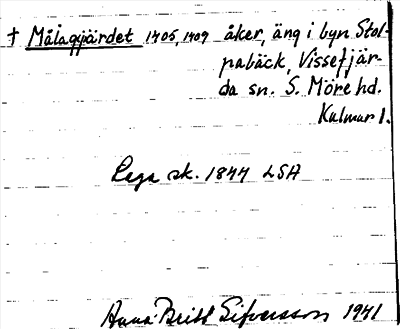 † Målagjärdet 1405, 1409 åker, äng i byn Stol-
pabäck, Vissefjär-
da sn. S. Möre hd.
Kalmar l.
Laga sk. 1844 LSA
Anna Britt Sifversson 1941